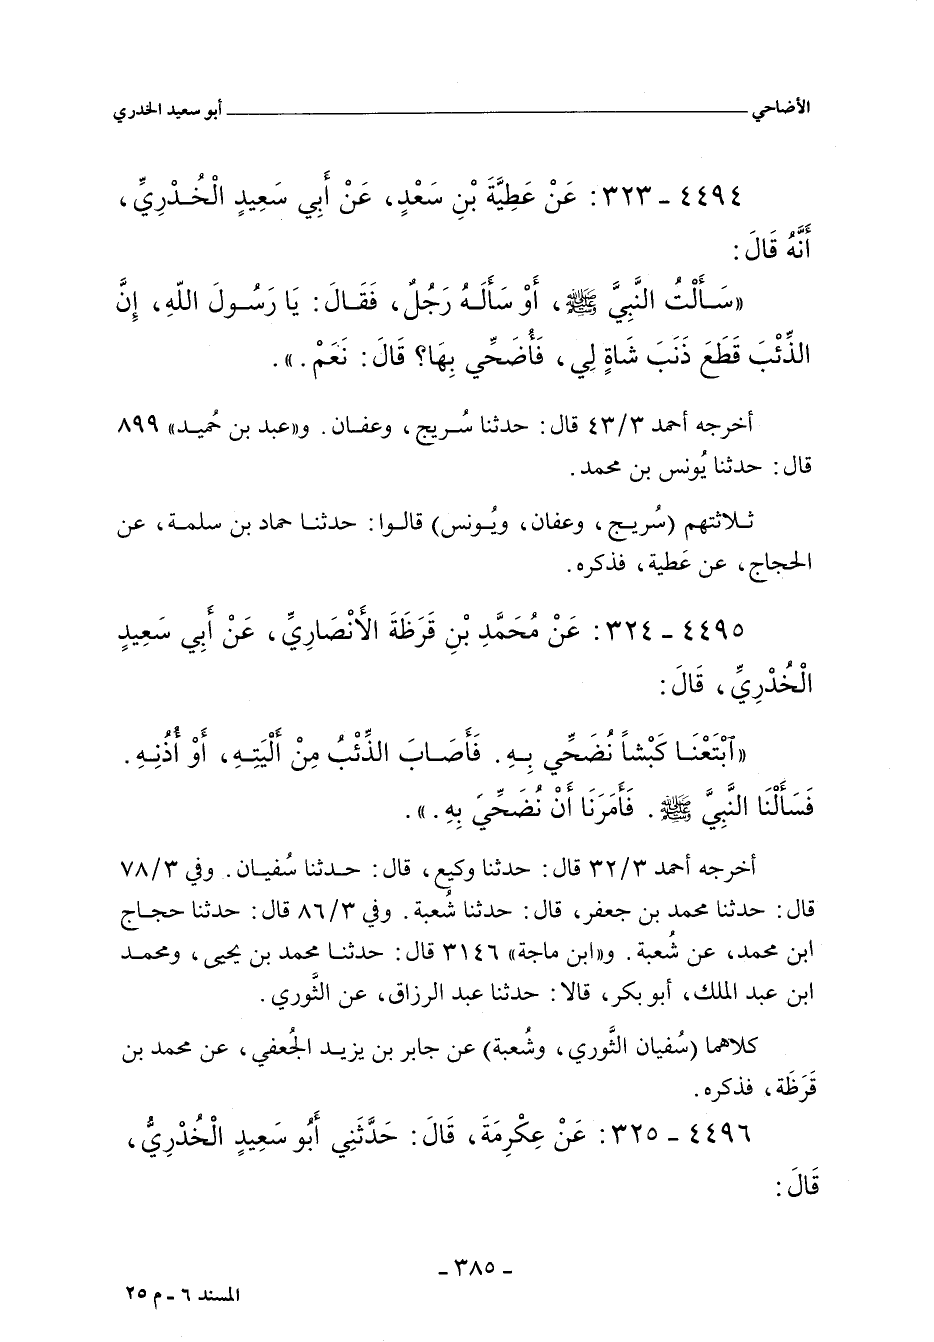 الأضاحي ــــــــــــــــــــ أبو سعيد الخدري
٤٤٩٤ - ٣٢٣: عَنْ عَطِيَّةَ بْنِ سَعْدٍ، عَنْ أَبِي سَعِيدٍ الْخُدْرِيِّ،
أَنَّهُ قَالَ:
«سَأَلْتُ النَّبِيَّ ﷺ، أَوْ سَأَلَهُ رَجُلٌ، فَقَالَ: يَا رَسُولَ اللّهِ، إِنَّ
الذِّئْبَ قَطَعَ ذَنَبَ شَاةٍ لِي، فَأُضَحِّي بِهَا؟ قَالَ: نَعَمْ.».
أخرجه أحمد ٤٣/٣ قال: حدثنا سُريج، وعفان. و«عبد بن حُميد» ٨٩٩
قال: حدثنا يُونس بن محمد.
ثلاثتهم (سُريج، وعفان، ويُونس) قالوا: حدثنا حماد بن سلمة، عن
الحجاج، عن عَطية، فذكره.
٤٤٩٥ - ٣٢٤: عَنْ مُحَمَّدِ بْنِ قَرَظَةَ الأَنْصَارِيِّ، عَنْ أَبِي سَعِيدٍ
الْخُدْرِيِّ، قَالَ:
«ٱبْتَعْنَا كَبْشاً نُضَحِّي بِهِ. فَأَصَابَ الذِّئْبُ مِنْ أَلْيَتِهِ، أَوْ أُذُنِهِ.
فَسَأَلْنَا النَّبِيَّ ﷺ. فَأَمَرَنَا أَنْ نُضَحِّيَ بِهِ.».
أخرجه أحمد ٣٢/٣ قال: حدثنا وكيع، قال: حدثنا سُفيان. وفي ٧٨/٣
قال: حدثنا محمد بن جعفر، قال: حدثنا شُعبة. وفي ٨٦/٣ قال: حدثنا حجاج
ابن محمد، عن شُعبة. و«ابن ماجة» ٣١٤٦ قال: حدثنا محمد بن يحيى، ومحمد
ابن عبد الملك، أبو بكر، قالا: حدثنا عبد الرزاق، عن الثَّوري.
كلاهما (سُفيان الثَّوري، وشُعبة) عن جابر بن يزيد الجُعفي، عن محمد بن
قَرَظَة، فذكره.
٤٤٩٦ - ٣٢٥: عَنْ عِكْرِمَةَ، قَالَ: حَدَّثَنِي أَبُو سَعِيدٍ الْخُدْرِيُّ،
قَالَ:
- ٣٨٥ -
المسند ٦ - م ٢٥